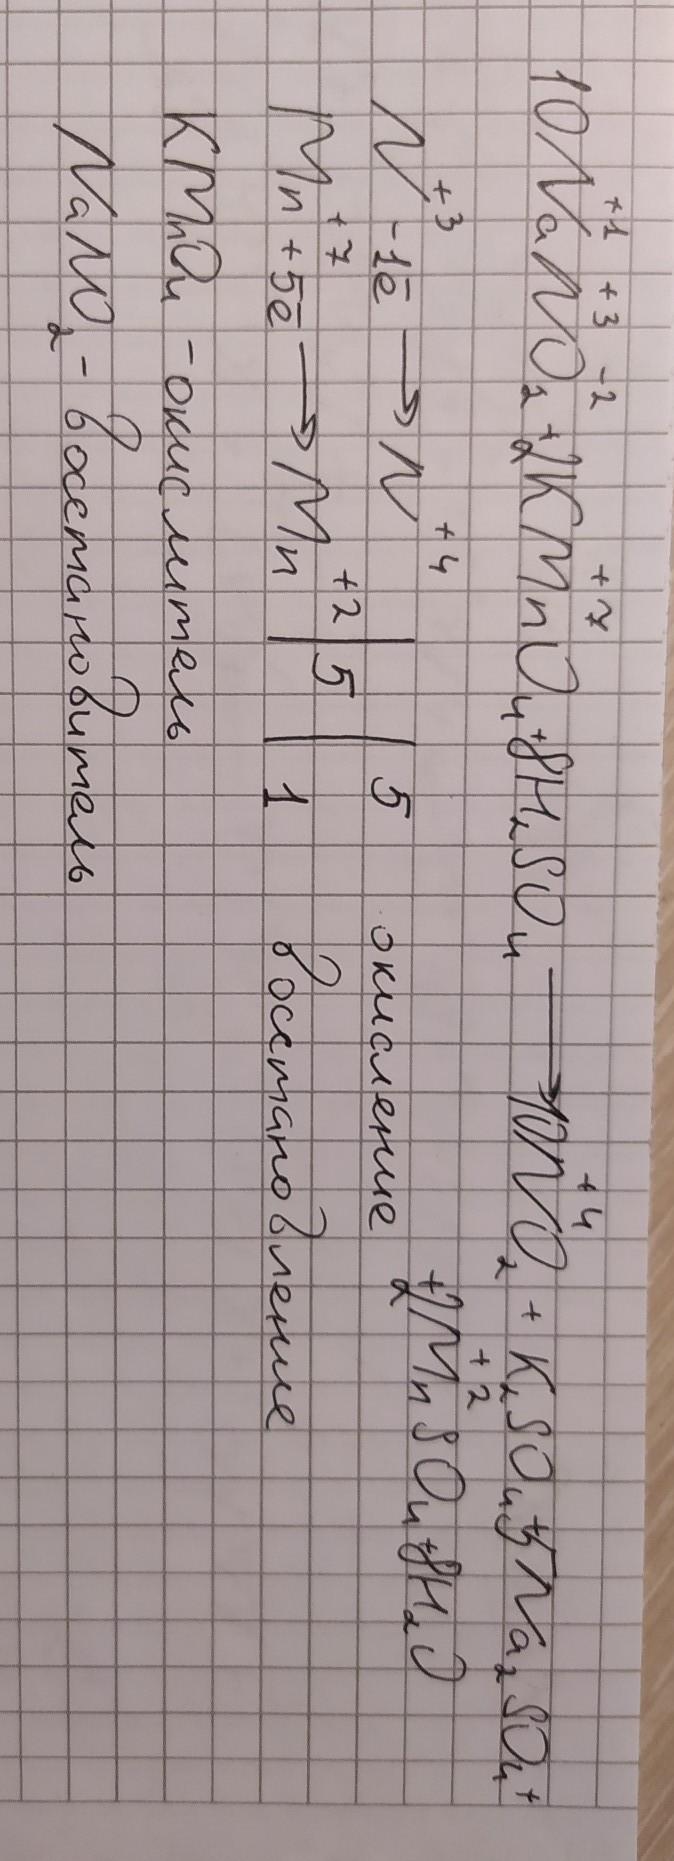 +1 +3 -2 +7 +4
10NaNO2 + 2KMnO4 + 8H2SO4 → 10NO2 + K2SO4 + 5Na2SO4 +
+2
+ 2MnSO4 + 8H2O
+3 +4
N -1ē → N | | 5 окисление
+7 +2 5
Mn +5ē → Mn | | 1 восстановление
KMnO4 - окислитель
NaNO2 - восстановитель